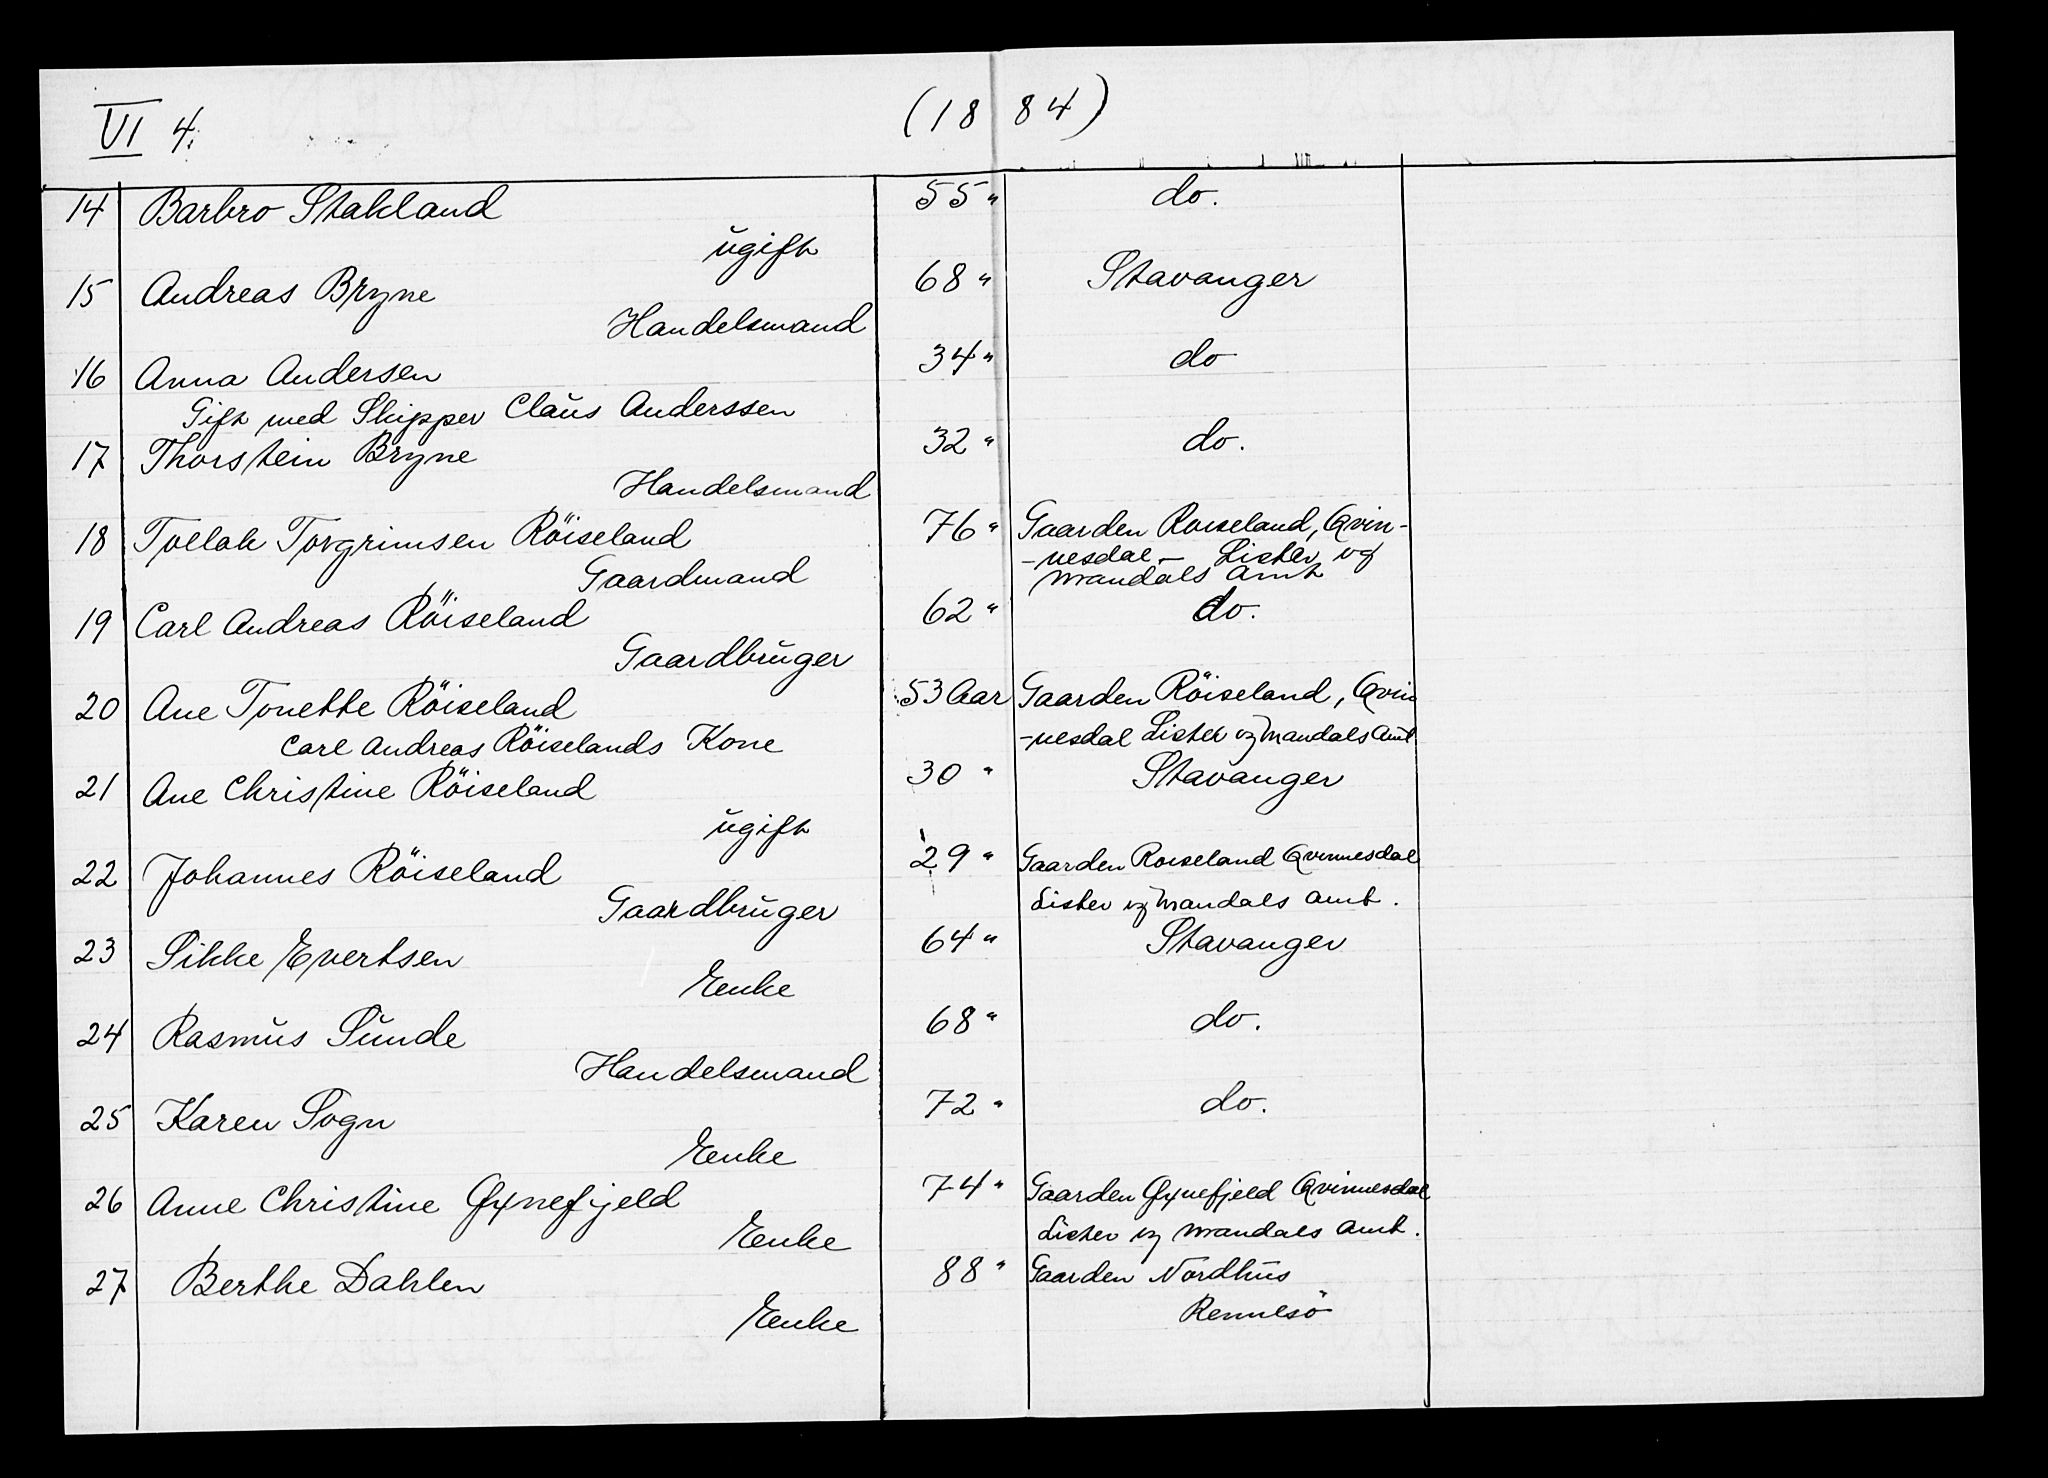 VI 4. (1884)
14 Barbro Stakland 55 " do.
ugift
15 Andreas Bryne 68 " Stavanger
Handelsmand
16 Anna Andersen 34 " do
Gift med Skipper Claus Anderssen
17 Thorstein Bryne 32 " do.
Handelsmand
18 Tollak Torgrimsen Röiseland 76 " Gaarden Roiseland, Qvin-
-nesdal - Lister og
Gaardmand Mandals Amt
19 Carl Andreas Röiseland 62 " do.
Gaardbruger
20 Ane Tonette Röiseland 53 Aar Gaarden Röiseland, Qvin
Carl Andreas Röiselands Kone -nesdal Lister og Mandals Amt
21 Ane Christine Röiseland 30 " Stavanger
ugift
22 Johannes Röiseland 29 " Gaarden Roiseland Qvinnesdal
Gaardbruger Lister og Mandals Amt.
23 Sikke Evertsen 64 " Stavanger
Enke
24 Rasmus Sunde 68 " do.
Handelsmand
25 Karen Sogn 72 " do.
Enke
26 Anne Christine Gynefjeld 74 " Gaarden Gynefjeld Qvinnesdal
Enke Lister og Mandals Amt.
27 Berthe Dahlen 88 " Gaarden Nordhus
Enke Rennesö